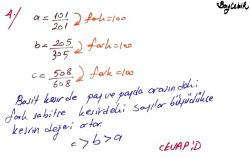 4-) a = 101/201 fark=100
b = 205/305 fark=100
c = 508/608 fark=100
Basit kesirde pay ve payda arasındaki
fark sabitse kesirdeki sayılar büyüdükçe
kesrin değeri artar.
c > b > a
CEVAP: D